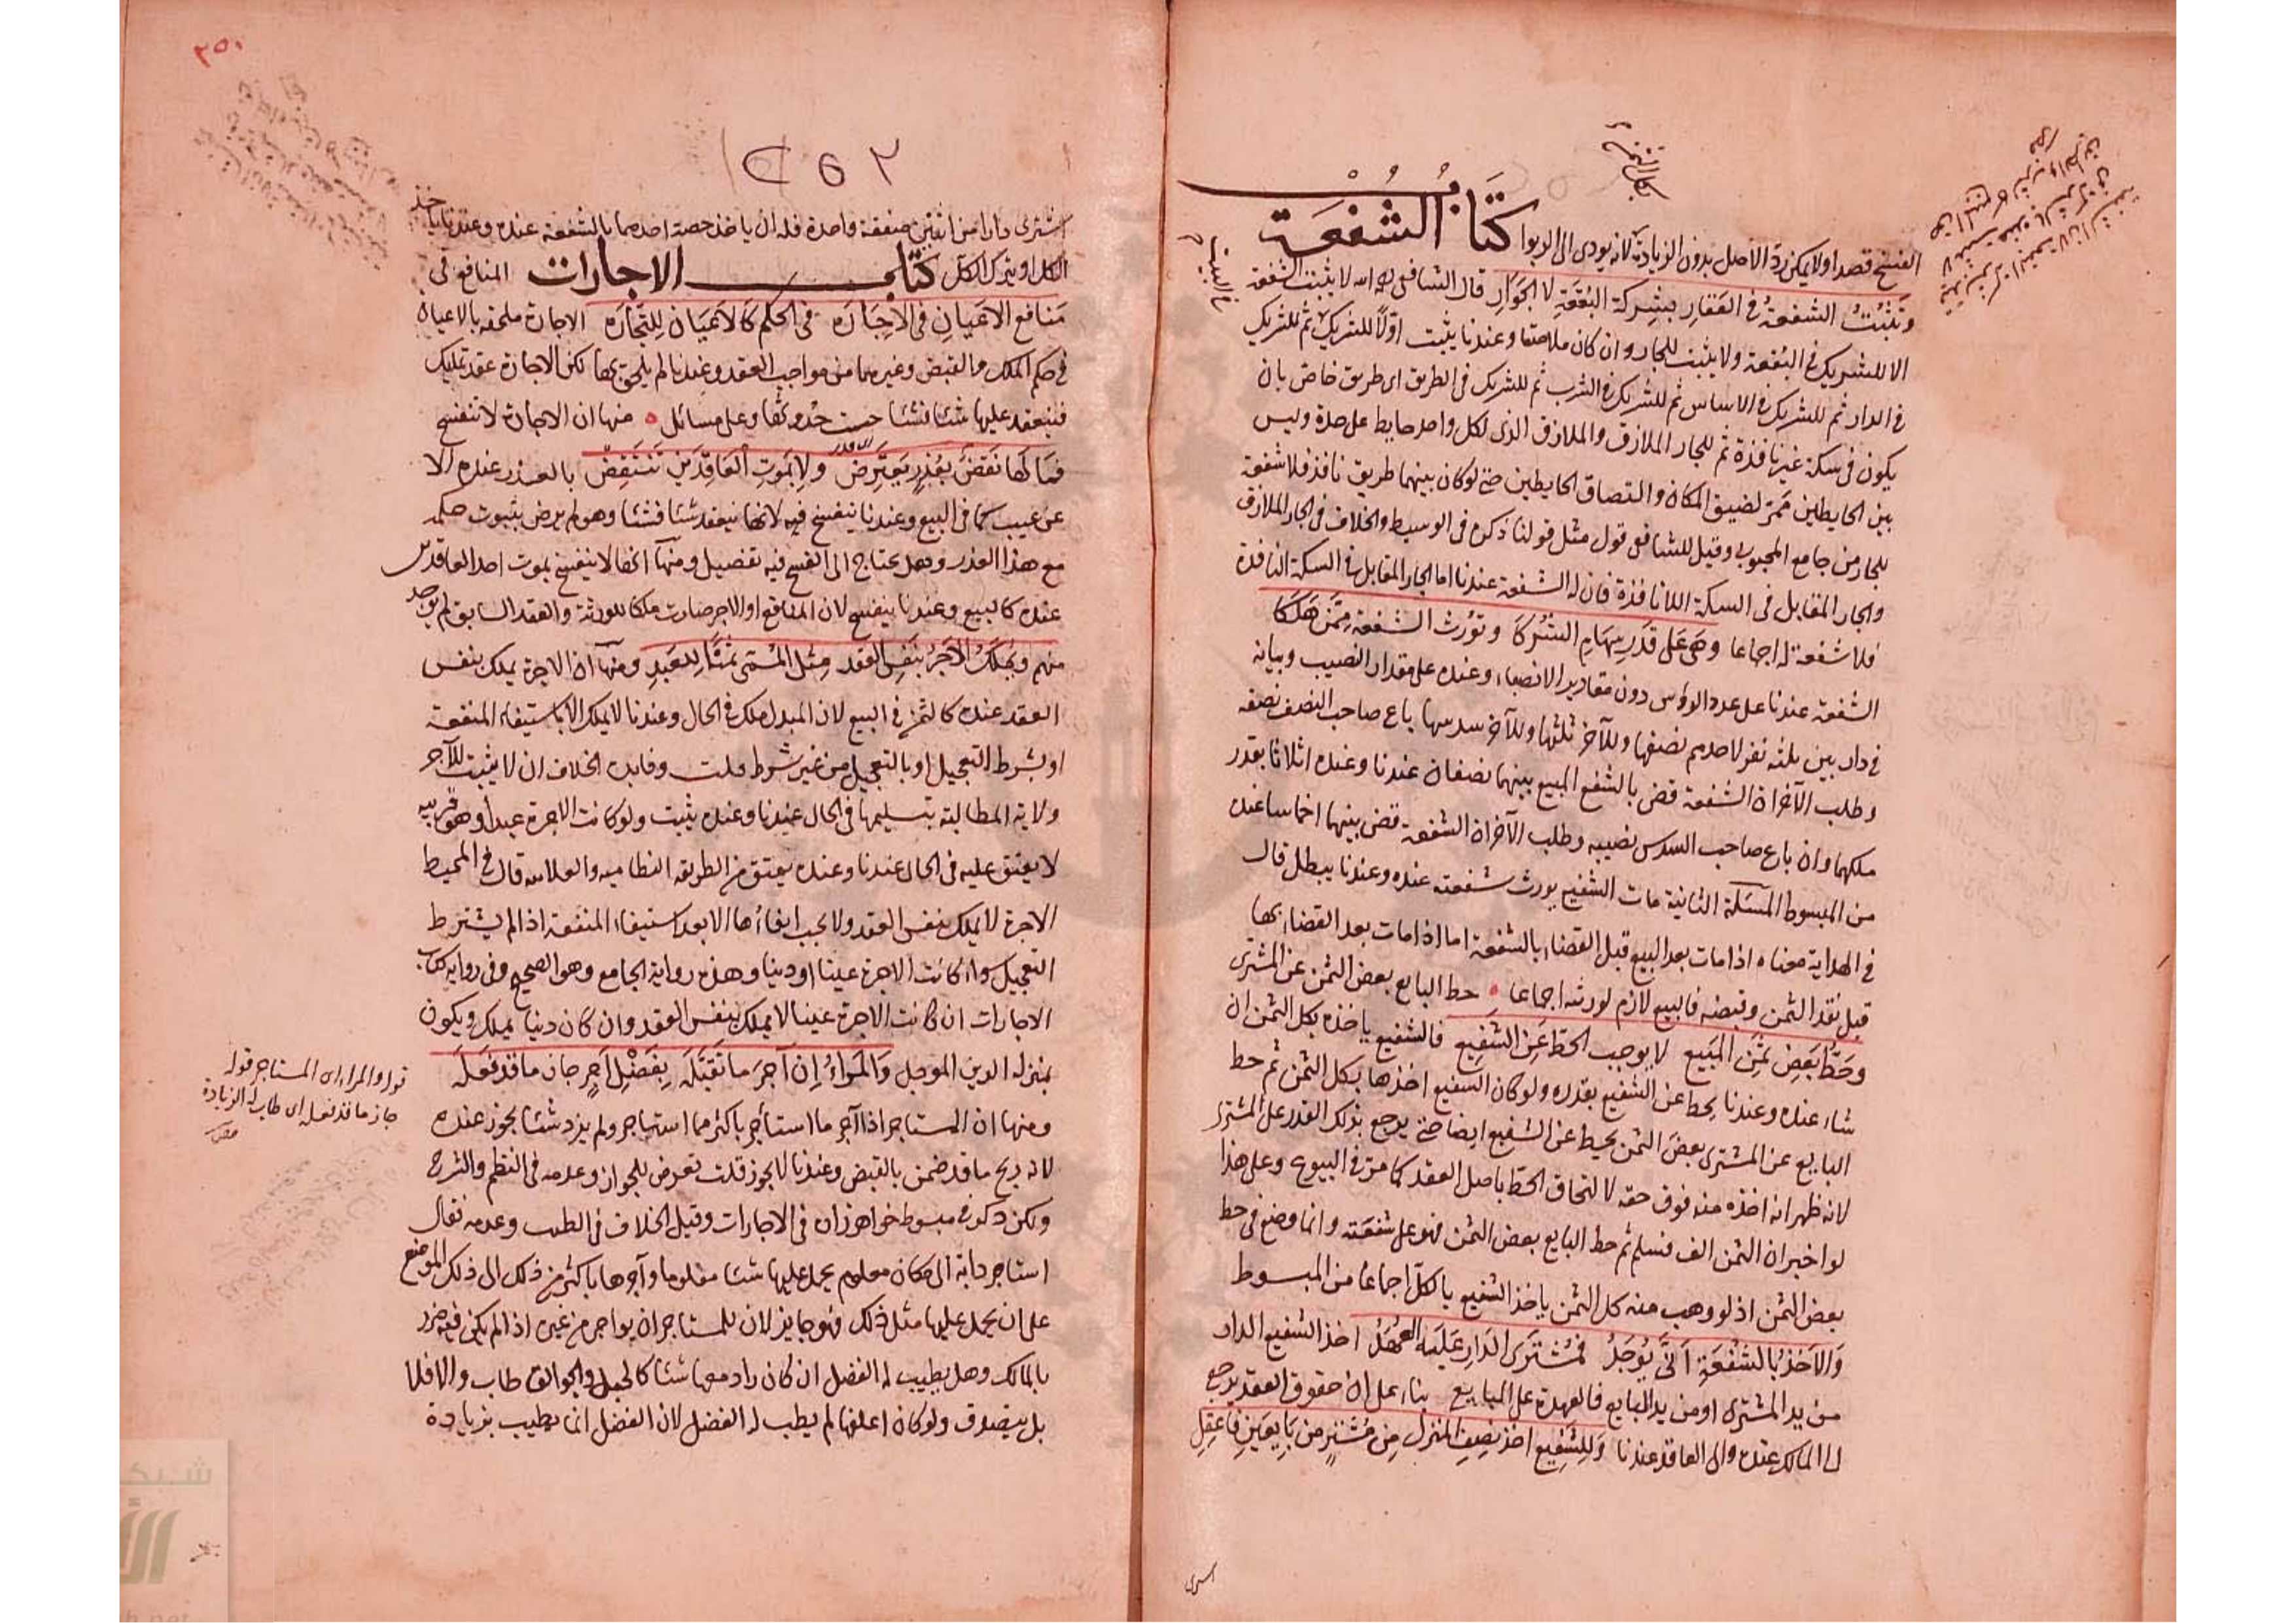 كتاب الشفعة
الفسخ قصدا ولا يمكن رد الاصل بدون الزيادة لانه يودى الى الربوا
وتثبت الشفعة في العقار بشركة البقعة لا الجوار قال الشافعي رحمه الله لا يثبت الشفعة
الا للشريك في البقعة ولا يثبت للجار وان كان ملاصقا وعندنا يثبت اولا للشريك ثم للشريك
في الدار ثم للشريك في الاساس ثم للشريك في الشرب ثم للشريك في الطريق اى طريق خاص بان
يكون في سكة غير نافذة ثم للجار الملازق والملازق الذى لكل واحد حايط على حدة وليس
بين الحايطين ممر لضيق المكان والتصاق الحايطين حتى لو كان بينهما طريق نافذ فلا شفعة
للجار من جامع المحبوبى وقيل للشافعي قول مثل قولنا ذكره في الوسيط والخلاف في الجار الملازق
والجار المقابل في السكة اللا نافذة فان له الشفعة عندنا اما الجار المقابل في السكة النافذة
فلا شفعة له اجماعا وهى على قدر سهام الشركا وتورث الشفعة ممن هلكا
الشفعة عندنا على عدد الرؤس دون مقادير الانصباء وعنده على مقدار النصيب وبيانه
في دار بين ثلثة نفر لاحدهم نصفها وللآخر ثلثها وللآخر سدسها باع صاحب النصف نصفه
وطلب الآخران الشفعة قضى بالشقص المبيع بينهما نصفان عندنا وعنده اثلاثا بقدر
ملكهما وان باع صاحب السدس نصيبه وطلب الآخران الشفعة قضى بينهما اخماسا عنده
من المبسوط المسئلة الثانية مات الشفيع يورث شفعته عنده وعندنا يبطل قال
في الهداية معناه اذا مات بعد البيع قبل القضاء بالشفعة اما اذا مات بعد القضاء بها
قبل نقد الثمن وقبضه فالبيع لازم لورثته اجماعا حط البايع بعض الثمن عن المشترى
وحط بعض ثمن المبيع لا يوجب الحط عن الشفيع فالشفيع ياخذه بكل الثمن ان
شاء عنده وعندنا يحط عن الشفيع بقدره ولو كان الشفيع اخذها بكل الثمن ثم حط
البايع عن المشترى بعض الثمن يحط عن الشفيع ايضا حتى يرجع بذلك القدر على المشترى
لانه ظهر انه اخذه منه فوق حقه لالتحاق الحط باصل العقد كما مر في البيوع وعلى هذا
لو اخبر ان الثمن الف فسلم ثم حط البايع بعض الثمن فهو على شفعته وانما وضع في حط
بعض الثمن اذ لو وهب منه كل الثمن ياخذ الشفيع بالكل اجماعا من المبسوط
والاخذ بالشفعة انى يوجد فمشترى الدار عليه العهد اخذ الشفيع الدار
من يد المشترى او من يد البايع فالعهدة على البايع بناء على ان حقوق العقد يرجع
الى المالك عنده والى العاقد عندنا وللشفيع اخذ نصف المنزل من مشتر من بايعين فاعقل
اشترى دارا من اثنين صفقة واحدة فله ان ياخذ حصة احدهما بالشفعة عنده وعندنا ياخذ
الكل او يترك الكل كتاب الاجارات المنافع في
منافع الاعيان في الاجارة في الحكم كالاعيان للتجارة الاجارة ملحقة بالاعيان
في حكم الملك والقبض وغيرهما من مواجب العقد وعندنا لم يلحق بها لكن الاجارة عقد تمليك
فينعقد عليها شئا فشئا حسب حدوثها وعلى مسائل منها ان الاجارة لا تنفسخ
فما لها نقض بعذر يعترض ولا بموت العاقدين تنتقض بالعذر عنده الا
عن عيب كما في البيع وعندنا ينفسخ فيه لانها ينعقد شئا فشئا وهو لم يرض بثبوت حكمه
مع هذا العذر وهل يحتاج الى الفسخ فيه تفصيل ومنها انها لا ينفسخ بموت احد العاقدين
عنده كالبيع وعندنا ينفسخ لان المنافع او الاجر صارت ملكا للورثة والعقد السابق لم يوجد
منهم ويملك الاجر بنفس العقد مثل المسمى ثمنا للعبد ومنها ان الاجرة يملك بنفس
العقد عنده كالثمن في البيع لان المبدل ملك في الحال وعندنا لا يملك الا باستيفاء المنفعة
او بشرط التعجيل او بالتعجيل من غير شرط قلت وفايدة الخلاف ان لا يثبت للآجر
ولاية المطالبة بتسليمها في الحال عندنا وعنده يثبت ولو كانت الاجرة عبدا وهو قريبه
لا يعتق عليه في الحال عندنا وعنده يعتق من الطريقة النظاميه والعلاميه قال في المحيط
الاجرة لا يملك بنفس العقد ولا يجب ايفاءها الا بعد استيفاء المنفعة اذا لم يشترط
التعجيل سواء كانت الاجرة عينا او دينا وهذه رواية الجامع وهو الصحيح وفي رواية كتاب
الاجارات ان كانت الاجرة عينا لا يملك بنفس العقد وان كان دينا يملك ويكون
بمنزلة الدين الموجل والمراء ان آجر ما تقبله بفضل اجر جاز ما قد فعله
ومنها ان المستاجر اذا آجر ما استأجر باكثر مما استاجر ولم يزد شئا يجوز عنده
لانه ربح ما قد ضمن بالقبض وعندنا لا يجوز قلت تعرض للجواز وعدمه في النظم والشرح
ولكن ذكر في مبسوط خواهرزاده في الاجارات وقيل الخلاف في الطيب وعدمه فقال
استاجر دابة الى مكان معلوم يحمل عليها شئا معلوما وآجرها باكثر من ذلك الى ذلك الموضع
على ان يحمل عليها مثل ذلك فهو جايز لان للمستاجر ان يواجر من غيره اذا لم يكن فيه ضرر
بالمالك وهل يطيب له الفضل ان كان زاد معها شئا كالحبل والجوالق طاب والا فلا
بل يتصدق ولو كان اعلفها لم يطب له الفضل لان الفضل انما يطيب بزيادة
قوله والمراء اى المستاجر قوله
جاز ما قد فعله اى طاب له الزيادة
٢٥٠
٢٥٢